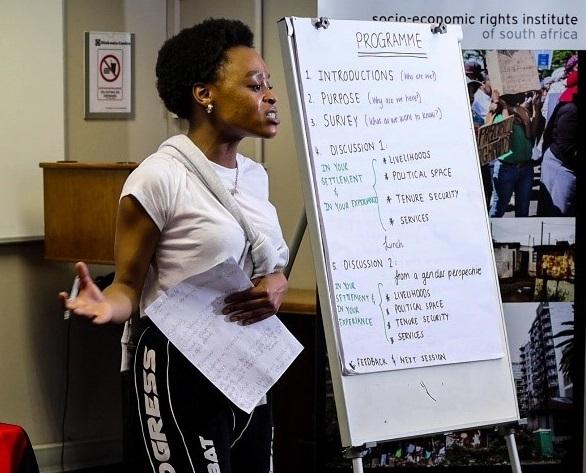 socio-economic rights institute
of south africa
PROGRAMME
1. INTRODUCTIONS (Who are we?)
2. PURPOSE (Why are we here?)
3. SURVEY (What do we want to know?)
4. DISCUSSION 1:
IN YOUR
SETTLEMENT
&
IN YOUR EXPERIENCE
* LIVELIHOODS
* POLITICAL SPACE
* TENURE SECURITY
* SERVICES
lunch
5. DISCUSSION 2:
from a gender perspective
IN YOUR
SETTLEMENT &
IN YOUR
EXPERIENCE
* LIVELIHOODS
* POLITICAL SPACE
* TENURE SECURITY
* SERVICES
FEEDBACK & NEXT SESSION
OGRESS
BAT